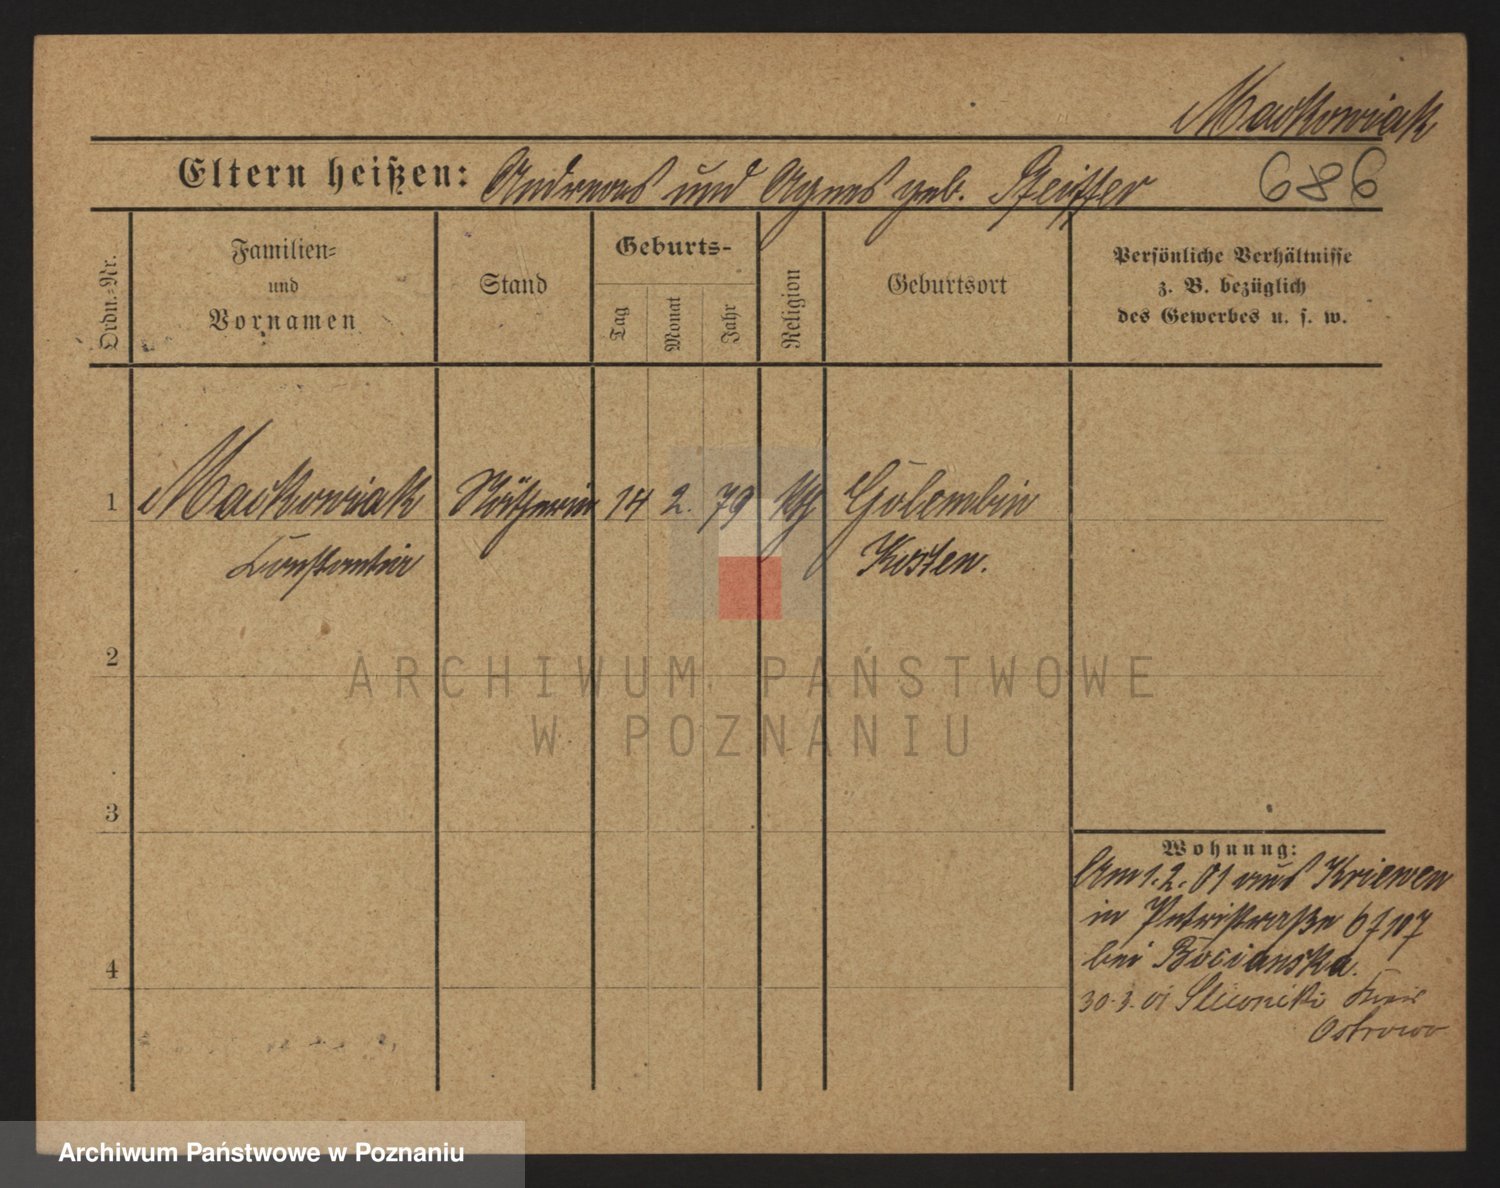 Mackowiak
Eltern heißen: Andreas und Agnes geb. Pfeiffer 686
Ordn.-Nr.
Familien-
und
Vornamen
Stand
Geburts-
Tag
Monat
Jahr
Religion
Geburtsort
Persönliche Verhältnisse
z. B. bezüglich
des Gewerbes u. s. w.
1 Mackowiak Näherin 14 2. 79 kth Golembin
Constantia Kosten.
2
ARCHIWUM PAŃSTWOWE
W POZNANIU
3
Wohnung:
Am 1.2.01 aus Kriewen
in Petristraße 6 f 107
bei Bocianska.
4
30.3.01 Sliwniki Kreis
Ostrowo
Archiwum Państwowe w Poznaniu